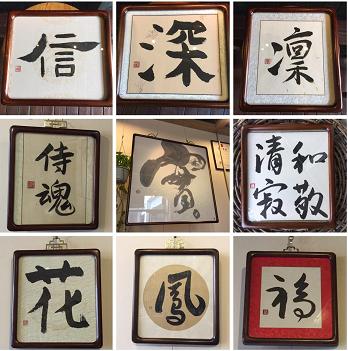 信
深
凛
侍魂
和敬
清寂
花
鳳
福